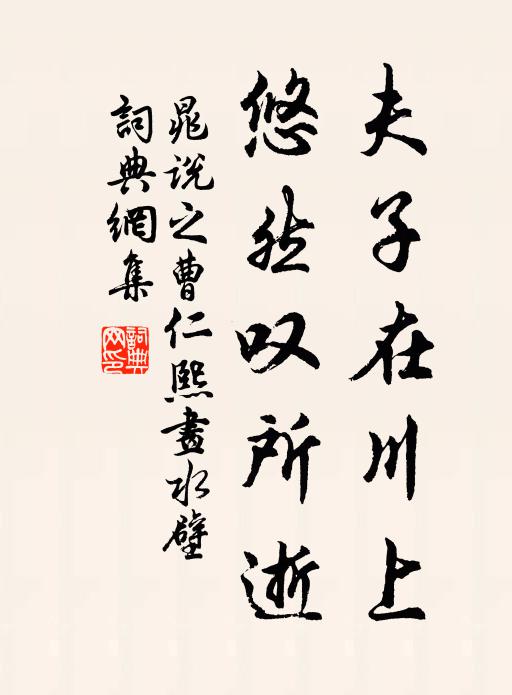 夫子在川上
悠然叹所逝
晁说之曹仁熙畫水壁
詞典網集
詞典网印